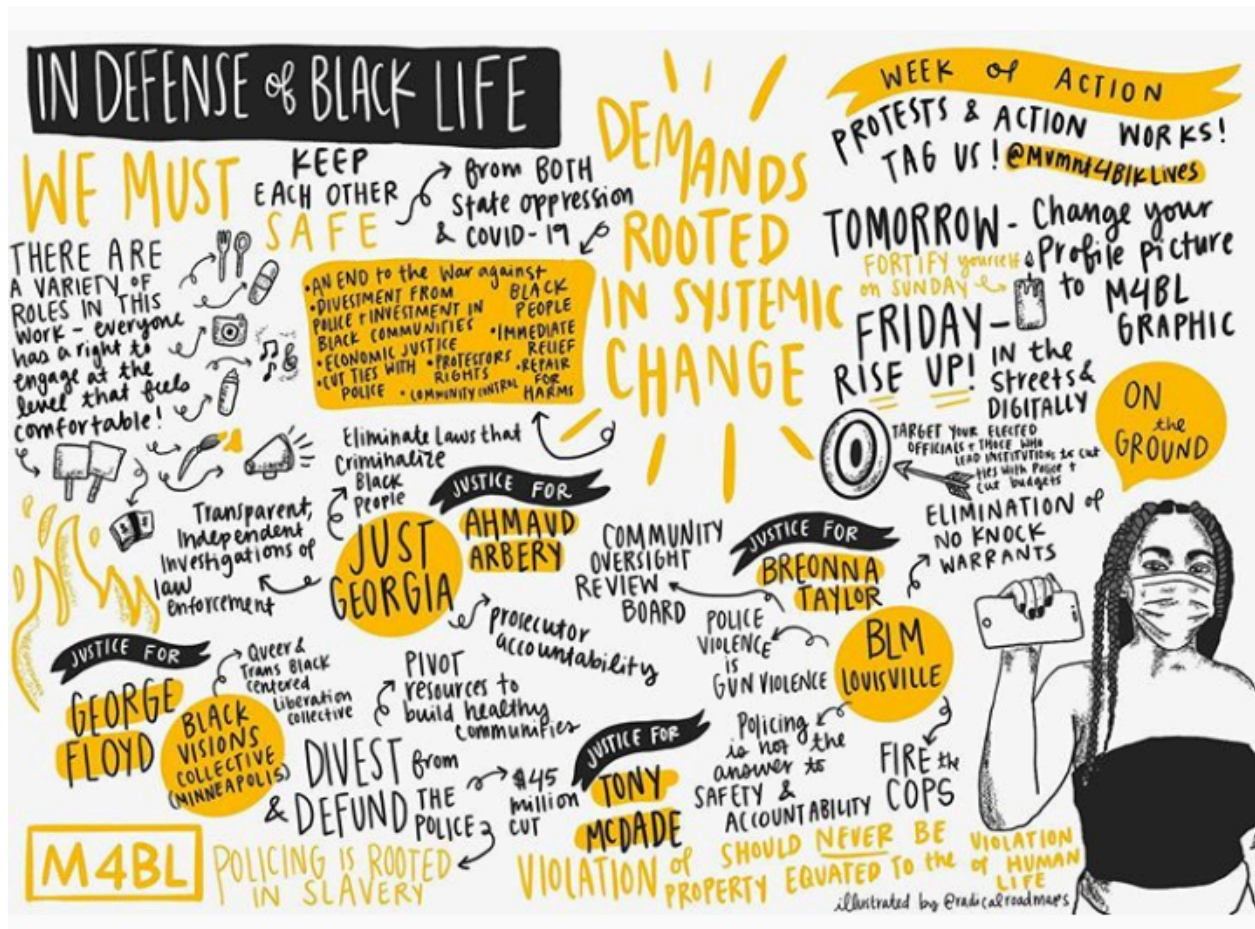 IN DEFENSE of BLACK LIFE
WE MUST
KEEP
EACH OTHER
SAFE
from BOTH
State oppression
& COVID-19
THERE ARE
A VARIETY OF
ROLES IN THIS
Work - everyone
has a right to
engage at the
level that feels
comfortable!
•AN END to the War against
BLACK
PEOPLE
•DIVESTMENT FROM
POLICE + INVESTMENT IN
BLACK COMMUNITIES
•ECONOMIC JUSTICE
•CUT TIES WITH
POLICE
•PROTESTORS
RIGHTS
•COMMUNITY CONTROL
•IMMEDIATE
RELIEF
•REPAIR
FOR
HARMS
DEMANDS
ROOTED
IN SYSTEMIC
CHANGE
WEEK of ACTION
PROTESTS & ACTION WORKS!
TAG US! @Mvmnt4BlkLives
TOMORROW - Change your
Profile picture
to M4BL
GRAPHIC
FORTIFY yourself
on SUNDAY
FRIDAY -
RISE UP!
IN the
Streets &
DIGITALLY
TARGET YOUR ELECTED
OFFICIALS + THOSE WHO
LEAD INSTITUTIONS to cut
ties with Police +
cut budgets
ON
the
GROUND
Eliminate Laws that
Criminalize
Black
People
Transparent,
Independent
Investigations of
law
enforcement
JUST
GEORGIA
JUSTICE FOR
AHMAUD
ARBERY
prosecutor
accountability
COMMUNITY
OVERSIGHT
REVIEW
BOARD
JUSTICE FOR
BREONNA
TAYLOR
ELIMINATION of
NO KNOCK
WARRANTS
POLICE
VIOLENCE
is
GUN VIOLENCE
BLM
LOUISVILLE
Policing
is not the
answer to
SAFETY &
ACCOUNTABILITY
FIRE the
COPS
JUSTICE FOR
GEORGE
FLOYD
BLACK
VISIONS
COLLECTIVE
(MINNEAPOLIS)
Queer &
Trans Black
centered
Liberation
collective
PIVOT
resources to
build healthy
communities
DIVEST from
& DEFUND THE
POLICE
$45
million
CUT
JUSTICE FOR
TONY
MCDADE
M4BL
POLICING IS ROOTED
IN SLAVERY
VIOLATION of
PROPERTY
SHOULD NEVER BE
EQUATED TO the
VIOLATION
of HUMAN
LIFE
illustrated by @radicalroadmaps